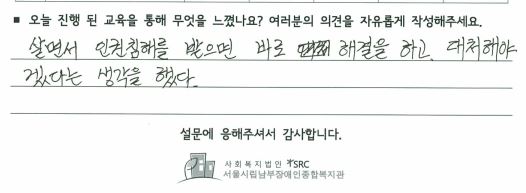 ▪ 오늘 진행 된 교육을 통해 무엇을 느꼈나요? 여러분의 의견을 자유롭게 작성해주세요.
살면서 인권침해를 받으면 바로 해결을 하고, 대처해야
겠다는 생각을 했다.
설문에 응해주셔서 감사합니다.
사회복지법인 SRC
서울시립남부장애인종합복지관